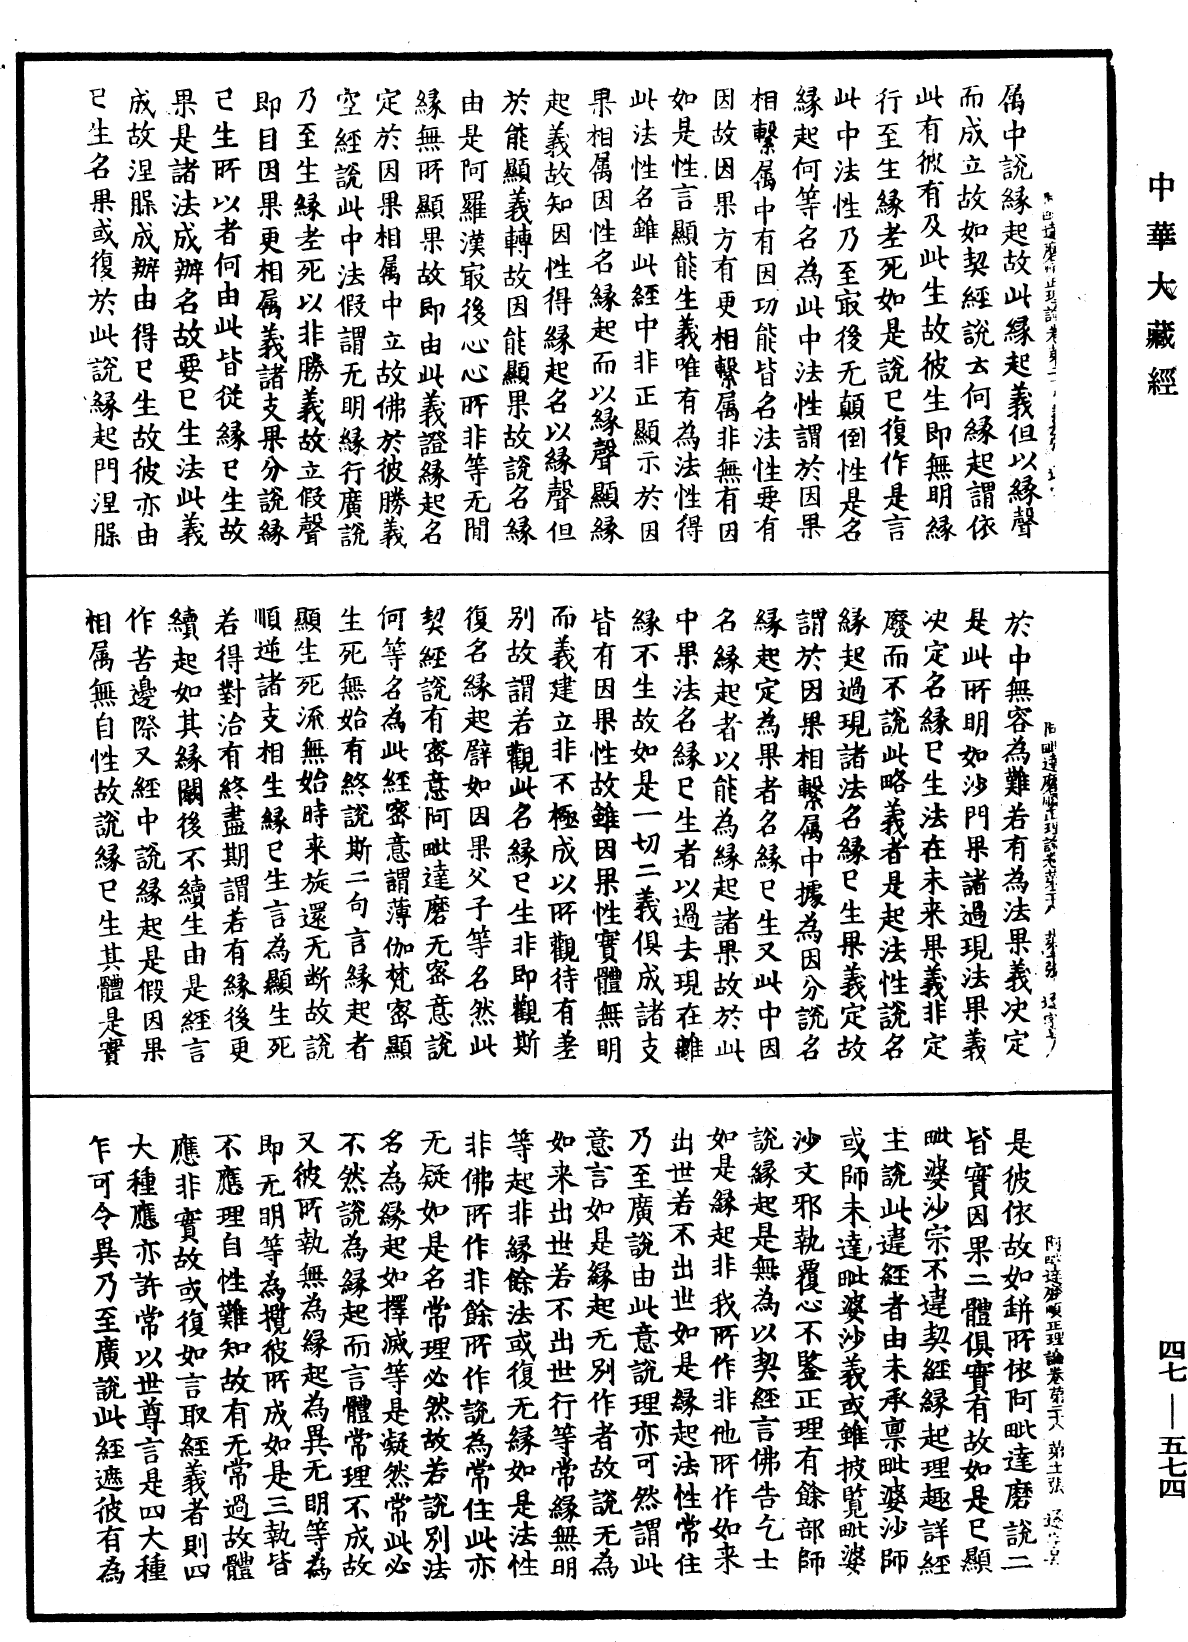 中華大藏經
属中說縁起故此縁起義但以縁聲
而成立故如契經說云何縁起謂依
此有彼有及此生故彼生即無明縁
行至生縁老死如是說已復作是言
此中法性乃至㝡後无顛倒性是名
縁起何等名為此中法性謂於因果
相繫属中有因功能皆名法性要有
因故因果方有更相繫属非無有因
如是性言顯能生義唯有為法性得
此法性名雖此經中非正顯示於因
果相属因性名縁起而以縁聲顯縁
起義故知因性得縁起名以縁聲但
於能顯義轉故因能顯果故說名縁
由是阿羅漢㝡後心心所非等无間
縁無所顯果故即由此義證縁起名
定於因果相属中立故佛於彼勝義
空經說此中法假謂无明縁行廣說
乃至生縁老死以非勝義故立假聲
即目因果更相属義諸支果分說縁
已生所以者何由此皆從縁已生故
果是諸法成辦名故要已生法此義
成故涅脲成辦由得已生故彼亦由
已生名果或復於此說縁起門涅脲
於中無容為難若有為法果義决定
是此所明如沙門果諸過現法果義
决定名縁已生法在未来果義非定
廢而不說此略義者是起法性說名
縁起過現諸法名縁已生果義定故
謂於因果相繫属中據為因分說名
縁起定為果者名縁已生又此中因
名縁起者以能為縁起諸果故於此
中果法名縁已生者以過去現在離
縁不生故如是一切二義俱成諸支
皆有因果性故雖因果性實體無明
而義建立非不極成以所觀待有差
别故謂若觀此名縁已生非即觀斯
復名縁起譬如因果父子等名然此
契經說有密意阿毗達磨无密意說
何等名為此經密意謂薄伽梵密顯
生死無始有終說斯二句言縁起者
顯生死流無始時来旋還无断故說
順逆諸支相生縁已生言為顯生死
若得對治有終盡期謂若有縁後更
續起如其縁闕後不續生由是經言
作苦邊際又經中說縁起是假因果
相属無自性故說縁已生其體是實
是彼依故如缾所依阿毗達磨說二
皆實因果二體俱實有故如是已顯
毗婆沙宗不違契經縁起理趣詳經
主說此違經者由未承禀毗婆沙師
或師未達毗婆沙義或雖披覧毗婆
沙文邪執覆心不鑒正理有餘部師
說縁起是無為以契經言佛告乞士
如是縁起非我所作非他所作如来
出世若不出世如是縁起法性常住
乃至廣說由此意說理亦可然謂此
意言如是縁起无别作者故說无為
如来出世若不出世行等常縁無明
等起非縁餘法或復无縁如是法性
非佛所作非餘所作說為常住此亦
无疑如是名常理必然故若說别法
名為縁起如擇滅等是凝然常此必
不然說為縁起而言體常理不成故
又彼所執無為縁起為異无明等為
即无明等為攬彼所成如是三執皆
不應理自性難知故有无常過故體
應非實故或復如言取經義者則四
大種應亦許常以世尊言是四大種
乍可令異乃至廣說此經遮彼有為
四七—五七四